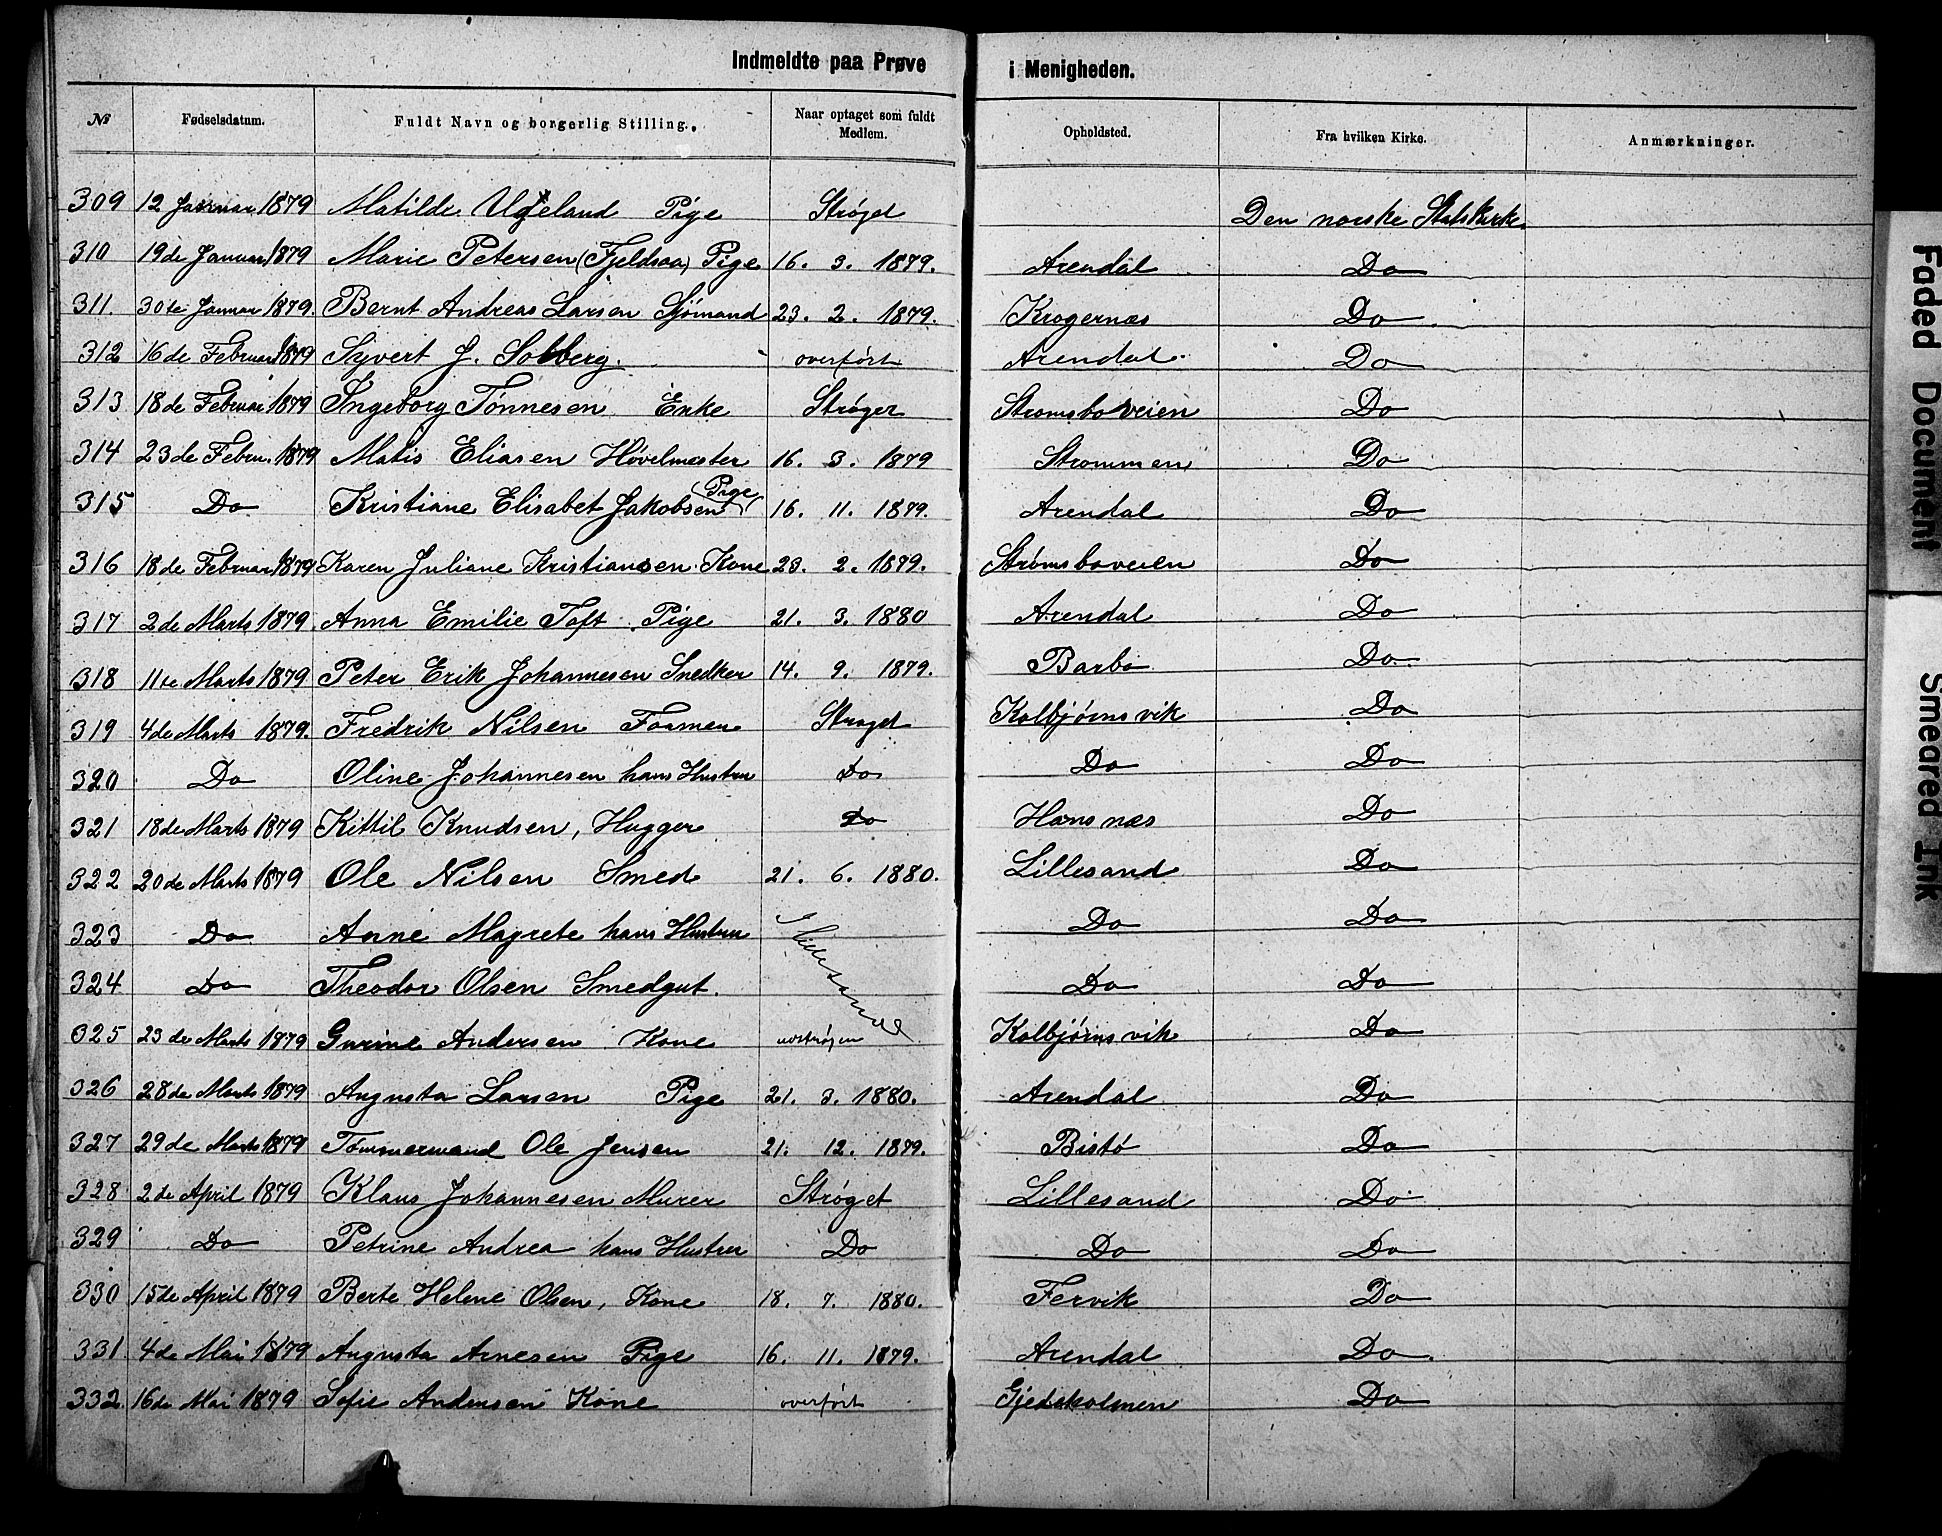 Indmeldte paa Prøve i Menigheden.
№ Fødselsdatum. Fuldt Navn og borgerlig Stilling. Naar optaget som fuldt Medlem. Opholdsted. Fra hvilken Kirke. Anmærkninger.
309 12 Januar 1879 Matilde Ugeland Pige Strøget Den norske Statskirke
310 19de Januar 1879 Marie Petersen (Fjeldsaa) Pige 16. 3. 1879. Arendal Do
311. 30te Januar 1879. Bernt Andreas Larsen Sjømand 23. 2. 1879. Krogernæs Do
312 16de Februar 1879 Syvert J. Solberg. overført Arendal Do
313 18de Februar 1879 Ingeborg Tønnesen Enke Strøget Strømsboveien Do
314 23de Febru. 1879 Matis Eliasen Høvelmester 16. 3. 1879 Strømmen Do
315 Do Kristiane Elisabet Jakobsen (Pige) 16. 11. 1879. Arendal Do
316 18de Februar 1879 Karen Juliane Kristiansen Kone 23. 2. 1879. Strømsboveien Do
317 2de Marts 1879. Anna Emilie Toft Pige 21. 3. 1880 Arendal Do
318 11te Marts 1879 Peter Erik Johannesen Snedker 14. 9. 1879. Barbo Do
319 4de Marts 1879. Fredrik Nilsen Formen Strøget Kolbjørnsvik Do
320 Do Oline Johannesen hans Hustru Do Do Do
321 18de Marts 1879 Kittil Knudsen, Hugger Do Hansnæs Do
322 20de Marts 1879 Ole Nilsen Smed 21. 6. 1880. Lillesand Do
323 Do Anne Magrete hans Hustru Lillesand Do Do
324 Do Theodor Olsen Smedgut. Do Do
325 23de Marts 1879 Gurine Andersen Kone udstrøgen Kolbjørnsvik Do
326 28de Marts 1879 Augusta Larsen Pige 21. 3. 1880. Arendal Do
327 29de Marts 1879 Tømmermand Ole Jensen 21. 12. 1879. Bistø Do
328 2de April 1879 Klaus Johannesen Murer Strøget Lillesand Do
329 Do Petrine Andrea hans Hustru Do Do Do
330 15de April 1879 Berte Helene Olsen, Kone 18. 7. 1880. Fervik Do
331 4de Mai 1879 Augusta Arnesen Pige 16. 11. 1879. Arendal Do
332. 16de Mai 1879 Sofie Andersen Kone overført Gjedeholmen Do
Faded Document
Smeared Ink